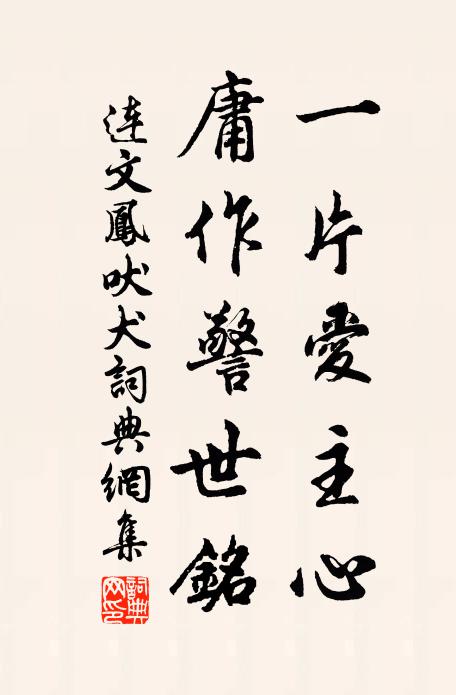 一片愛主心
庸作警世銘
連文鳳吠犬詞典網集
詞典網印